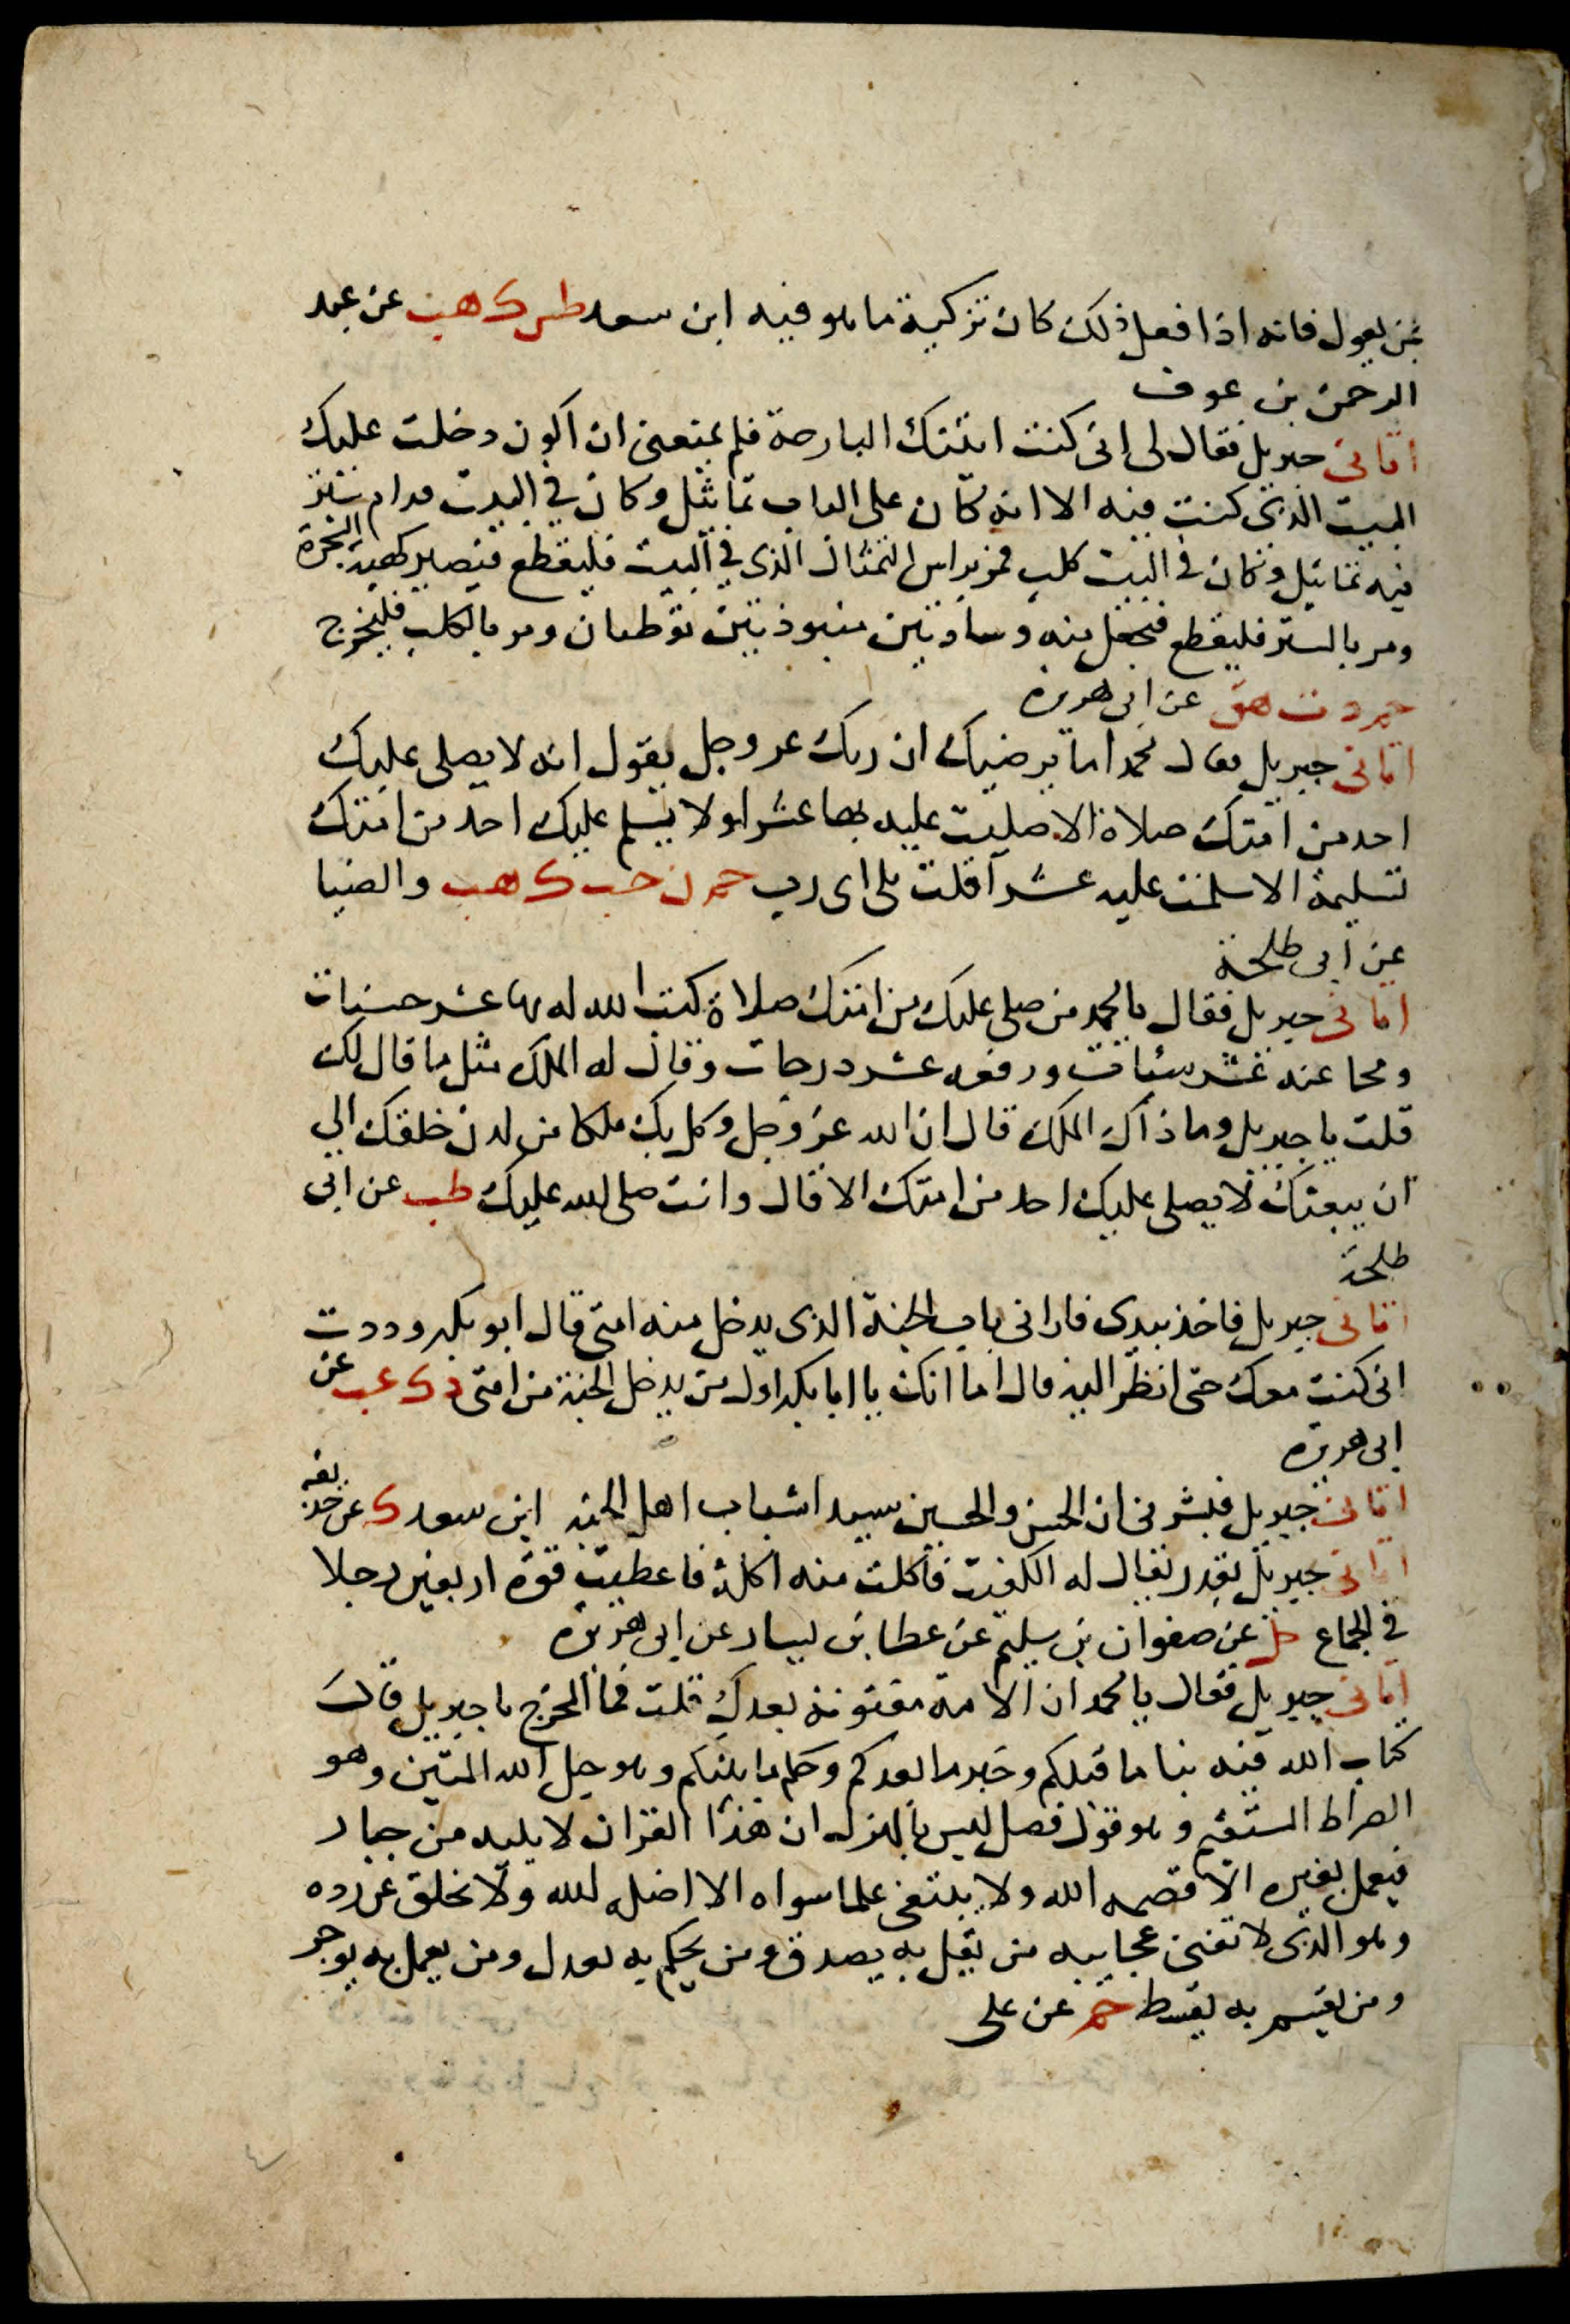 بمن يعول فانه اذا فعل ذلك كان تزكية ما هو فيه ابن سعد طس ك هب عن عبد
الرحمن بن عوف
اتانى جبريل فقال لى انى كنت اتيتك البارحة فلم يمنعنى ان اكون دخلت عليك
البيت الذى كنت فيه الا انه كان على الباب تماثيل وكان فى البيت قرام ستر
فيه تماثيل وكان فى البيت كلب فمر براس التمثال الذى فى البيت فليقطع فيصير كهيئة الشجرة
ومر بالستر فليقطع فيجعل منه وسادتين منبوذتين توطبان ومر بالكلب فليخرج
حم د ت هق عن ابى هريرة
اتانى جبريل فقال محمد اما يرضيك ان ربك عز وجل يقول انه لا يصلى عليك
احد من امتك صلاة الا صليت عليه بها عشرا ولا يسلم عليك احد من امتك
تسليمة الا سلمت عليه عشرا قلت بلى اى رب حم ن حب ك هب والضيا
عن ابى طلحة
اتانى جبريل فقال يا محمد من صلى عليك من امتك صلاة كتب الله له بها عشر حسنات
ومحا عنه عشر سيئات ورفعه عشر درجات وقال له الملك مثل ما قال لك
قلت يا جبريل وما ذاك الملك قال ان الله عز وجل وكل بك ملكا من لدن خلقك الى
ان يبعثك لا يصلى عليك احد من امتك الا قال وانت صلى الله عليك طب عن ابى
طلحة
اتانى جبريل فاخذ بيدى فارانى باب الجنة الذى يدخل منه امتى قال ابو بكر وددت
انى كنت معك حتى انظر اليه قال اما انك يا ابا بكر اول من يدخل الجنة من امتى د ك عب عن
ابى هريرة
اتانى جبريل فبشرنى ان الحسن والحسين سيدا شباب اهل الجنة ابن سعد ك عن حذيفه
اتانى جبريل بقدر يقال له الكفيت فاكلت منه اكلة فاعطيت قوة اربعين رجلا
فى الجماع حل عن صفوان بن سليم عن عطا بن يسار عن ابى هريرة
اتانى جبريل فقال يا محمد ان الامة مفتونة بعدك قلت فما المخرج يا جبريل قال
كتاب الله فيه نبا ما قبلكم وخبر ما بعدكم وحكم ما بينكم وهو حبل الله المتين وهو
الصراط المستقيم وهو قول فصل ليس بالهزل ان هذا القران لا يليه من جبار
فيعمل بغيره الا قصمه الله ولا يبتغى علما سواه الا اضله الله ولا يخلق عن رده
وهو الذى لا تفنى عجايبه من يقل به يصدق ومن يحكم به يعدل ومن يعمل به يوجر
ومن يقسم به يقسط حم عن على